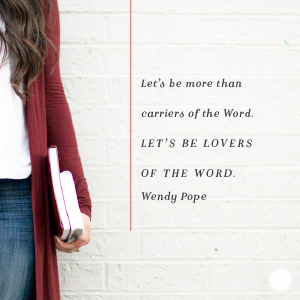 Let's be more than
carriers of the Word.
LET'S BE LOVERS
OF THE WORD.
Wendy Pope